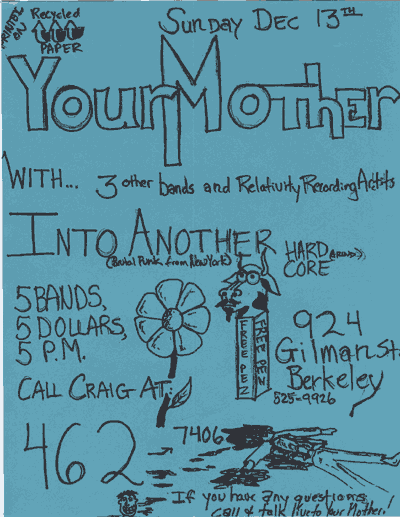 PRINTED ON
Recycled
PAPER
SUNDAY DEC 13TH
YourMother
WITH... 3 other bands and Relativity Recording Artists
INTO ANOTHER
(Brutal Punk from New York)
HARD
CORE
5 BANDS,
5 DOLLARS,
5 P.M.
FREE PEZ
FREE PEZ
924
Gilman St.
Berkeley
525-9926
CALL CRAIG AT:
462
7406
If you have any questions,
call & talk live to Your Mother!